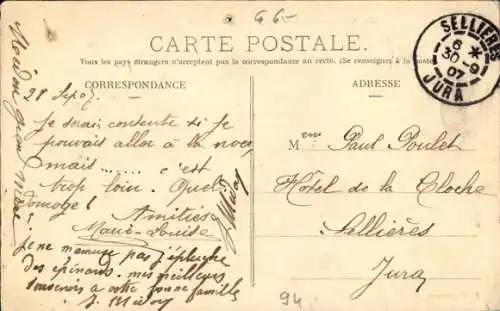 66-
CARTE POSTALE.
Tous les pays étrangers n'acceptent pas la correspondance au recto. (Se renseigner à la poste
CORRESPONDANCE
ADRESSE
SELLIÈRES
6 *
30 -9
07
JURA
28 Sep 07
Je serai contente si je
pouvais aller à la noce
mais ...... c'est
trop loin. Quel
domage !
Amitiés
Marie-Louise
Je ne m'amuse pas j'épluche
des épinards. mes meilleurs
souvenirs à votre bonne famille
Mme Paul Poulet
Hôtel de la Cloche
Sellières
Jura
94